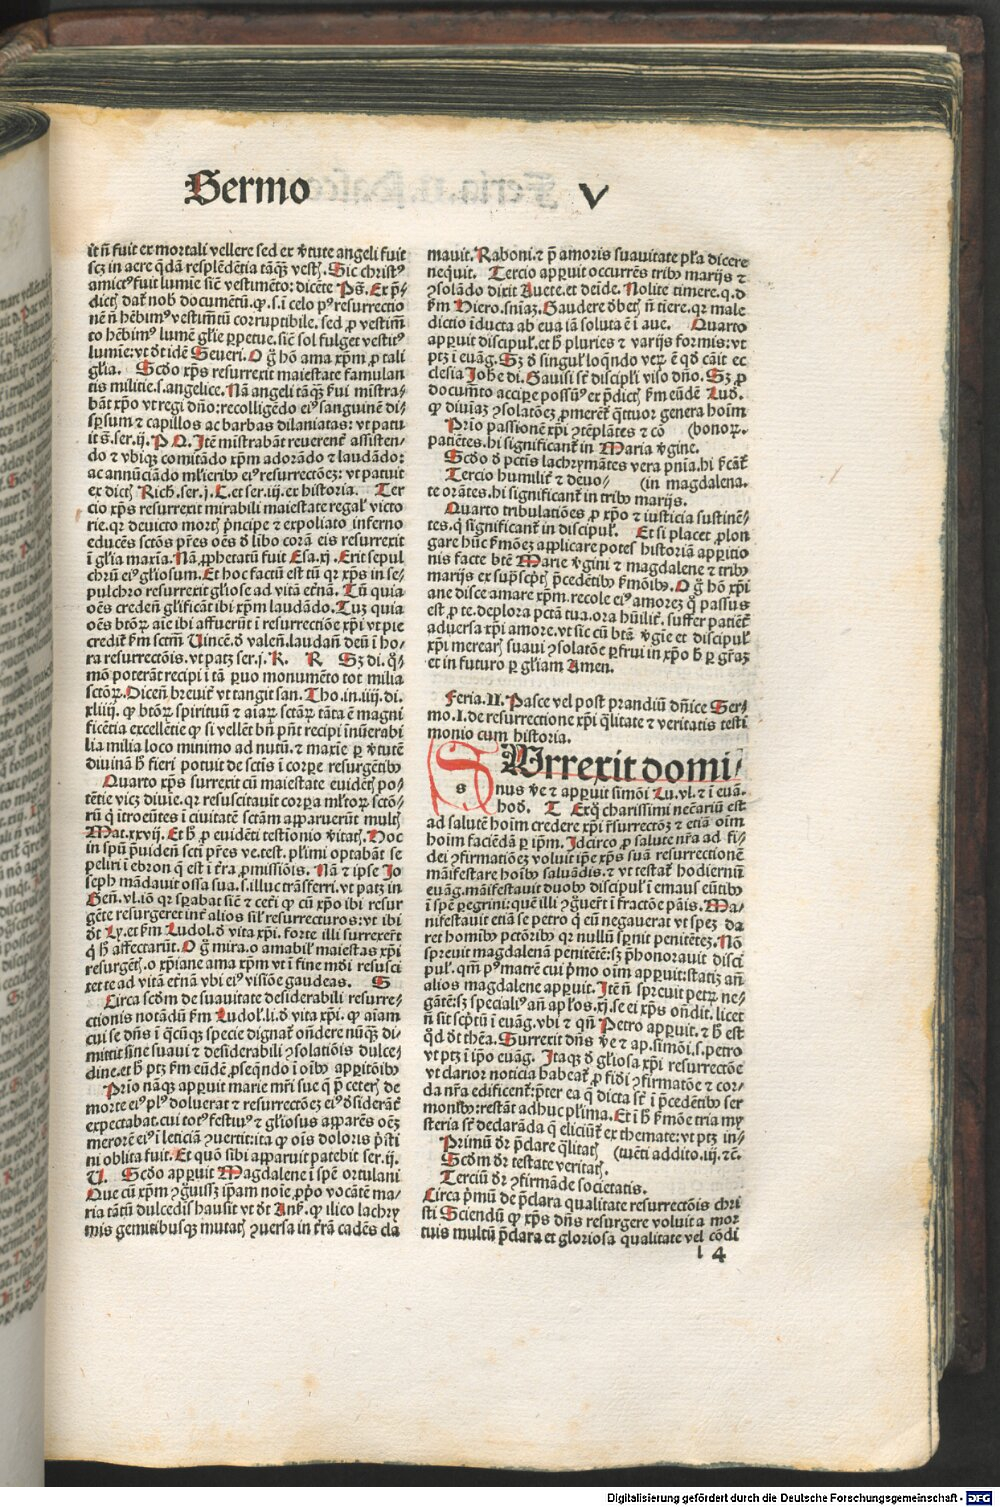 Sermo V
it ñ fuit ex mortali vellere sed ex v̄tute angeli fuit
scꝫ in aere q̄dā resplēdētia tāqꝫ vestꝭ. Sic christꝰ
amictꝰ fuit lumīe sicē vestimēto: dicēte Ps̄. Ex p̄-
dictꝭ dat̄ nob̄ documētū. ꝙ. s. ī celo pꝰ resurrectio
nē ñ hēbimꝰ vestimm̄tū corruptibile. sed ꝓ vestim̄
to hēbimꝰ lumē gl̄ie ꝑpetue. sicē sol fulget vestitꝰ
lumīe: vt dt̄ idē Seueri. O ḡ hō ama xp̄m ꝓ tali
gl̄ia. Scd̄o xp̄s resurrexit maiestate famulan
tis militie. s. angelice. Nā angeli tāqꝫ fui mistra-
bāt xp̄o vt regi dn̄o: recolligēdo eiꝰ sanguinē di-
sꝑsum ⁊ capillos ac barbas dilaniatas: vt patu
it s̄. ser. ij. P Q. Itē mistrabāt reuerent̄ assisten-
do ⁊ vbiqꝫ comitādo xp̄m adorādo ⁊ laudādo:
ac annūciādo ml̄ieribꝰ eiꝰ resurrectōeꝫ: vt patuit
ex dictꝭ Rich. ser. j. C. et ser. iij. ex historia. Ter
cio xp̄s resurrexit mirabili maiestate regal̄ victo
rie. qꝛ deuicto mortꝭ p̄ncipe ⁊ expoliato inferno
educēs sctōs pr̄es oēs d̄ libo corā eis resurrexit
ī gl̄ia maxīa. Nā ꝓphetatū fuit Esa. xj. Erit sepul
chrū eiꝰ gl̄iosum. Et hoc factū est tū qꝛ xp̄s in se-
pulchro resurrexit gl̄iose ad vitā et̄nā. Tū quia
oēs creden̄ gl̄ificāt ibi xp̄m laudādo. Tuꝫ quia
oēs btōꝝ aīe ibi affuerūt ī resurrectiōe xp̄i vt pie
credit̄ ẜm sctm̄ Vincē. d̄ valen̄. laudan̄ deū ī ho-
ra resurrectōis. vt patꝫ ser. j. K. R Sꝫ di. q̄-
mō poterāt recipi ī tā ꝑuo monumēto tot milia
sctōꝝ. Dicen̄ breuit̄ vt tangit san. Tho. in. iiij. di.
xliiij. ꝙ btōꝝ spirituū ⁊ aīaꝝ sctāꝝ tāta ē magni
ficētia excellētie ꝙ si vellēt bn̄ pn̄t recipi īnūerabi
lia milia loco minimo ad nutū. ⁊ maxīe ꝑ v̄tutē
diuinā h̄ fieri potuit de sctis ī corꝑe resurgētibꝰ
Quarto xp̄s surrexit cū maiestate euidētꝭ po-
tētie vicꝫ diuīe. qꝛ resuscitauit corꝑa ml̄toꝝ sctō-
rū q̄ itroeūtes ī ciuitatē sctām apparuerūt multꝭ
Mat. xxvij. Et h̄ ꝓ euidēti testīonio v̄itatꝭ. Hoc
in spū p̄uiden̄ scti pr̄es ve. test. pl̄imi optabāt se
peliri ī ebron q̄ est ī t̄ra ꝓmissiōis. Nā ⁊ ipse Jo
seph mādauit ossa sua. s. illuc trāsferri. vt patꝫ in
Gen̄. vl. iō qꝛ sꝑabat sicē ⁊ cet̄i ꝙ cū xp̄o ibi resur
gēte resurgeret int̄ alios sil̄ resurrecturos: vt ibi
dt̄ Ly. et ẜm Ludol. d̄ vita xp̄i. forte illi surrexer̄t
q̄ h̄ affectarūt. O ḡ mira. o amabil̄ maiestas xp̄i
resurgētꝭ. o xp̄iane ama xp̄m vt ī fine mōi resusci
tet te ad vitā et̄nā vbi eiꝰ visiōe gaudeas. S
Circa scdm̄ de suauitate desiderabili resurre-
ctionis notādū ẜm Ludol. li. d̄ vita xp̄i. ꝙ aīam
cui se dn̄s ī q̄cūqꝫ specie dignat̄ ondere nūqꝫ di-
mittit sine suaui ⁊ desiderabili ꝯsolatiōis dulce-
dine. et h̄ ptꝫ ẜm eūdē ꝓseqn̄do ī oībꝰ apꝑitōibꝰ
Prīo nāqꝫ apꝑuit marie mr̄i sue q̄ p̄ ceterꝭ de
morte eiꝰ plꝰ doluerat ⁊ resurrectōeꝫ eiꝰ d̄siderāt̄
expectabat. cui totꝰ festiuꝰ ⁊ gl̄iosus apparēs oēꝫ
merorē eiꝰ ī leticiā ꝯuertit: ita ꝙ oīs doloris p̄sti
ni oblita fuit. Et quō sibi apparuit patebit ser. ij.
V. Scd̄o apꝑuit Magdalene ī spēe ortulani
Que cū xp̄m ꝯḡuisꝫ ip̄am noīe ꝓpō vocātē ma-
ria tātū dulcedis hausit vt dt̄ Ansꝭ. ꝙ ilico lachry
mis gemitibusqꝫ mutatꝭ ꝯuersa in t̄rā cadēs cla
mauit. Raboni. ⁊ p̄ amoris suauitate pl̄a dicere
nequit. Tercio apꝑuit occurrēs tribꝰ marijs ⁊
ꝯsolādo dixit Auete. et deīde. Nolite timere. q. d
ẜm Hiero. sn̄iaꝫ. Gaudere d̄betꝭ ñ tiere. qꝛ male
dictio īducta ab eua iā soluta ē ī aue. Quarto
apꝑuit discipul̄. et h̄ pluries ⁊ varijs formis: vt
ptꝫ ī euāg. Sꝫ d̄ singul̄ loqn̄do veꝝ ē qd̄ cāit ec
clesia Johē di. Gauisi sr̄t discipl̄i viso dn̄o. Sꝫ ꝓ
documēto accipe possūꝰ ex p̄dictꝭ ẜm eūdē Lud.
ꝙ diuīaꝫ ꝯsolatōeꝫ ꝓmerēt̄ q̄tuor genera hoīm
Prīo passionē xp̄i ꝯtēplātes ⁊ cō (honoꝝ.
patiētes. hi significant̄ in Maria v̄gine.
Scd̄o d̄ pctīs lachrymātes vera pn̄ia. hi ẜcāt̄
Tercio humilit̄ ⁊ deuo- (in magdalena.
te orātes. hi significant̄ in tribꝰ marijs.
Quarto tribulatiōes ꝓ xp̄o ⁊ iusticia sustinē-
tes. q̄ significant̄ in discipul̄. Et si placet ꝓlon
gare hūc ẜmōeꝫ applicare potes historiā apꝑitio
nis facte btē Marie v̄gini ⁊ magdalene ⁊ tribꝰ
marijs ex sup̄scptꝭ p̄cedētibꝰ ẜmōibꝰ. O ḡ hō xp̄i
ane disce amare xp̄m. recole eiꝰ amoreꝫ q̄ passus
est ꝓ te. deplora pctā tua. ora hūilit̄. suffer patiēt̄
aduersa xp̄i amore. vt sic cū btā v̄gīe et discipul̄
xp̄i merearꝭ suaui ꝯsolatōe ꝑfrui in xp̄o h̄ ꝑ gr̄aꝫ
et in futuro ꝑ gl̄iam Amen.
Feria. II. Pasce vel post prandiū dn̄ice Ser-
mo. I. de resurrectione xp̄i q̄litate ⁊ veritatis testi
monio cum historia.
SUrrexit domi-
nus v̄e ⁊ apꝑuit simōi Lu. vl. ⁊ ī euā.
hod. T Exq̄ charissimi necēariū est
ad salutē hoīm credere xp̄i r̄surrectōeꝫ ⁊ etiā oīm
hoīm faciēdā ꝑ ip̄m. Idcirco ꝓ salute nr̄a ad fi-
dei ꝯfirmatiōeꝫ voluit ip̄e xp̄s suā resurrectionē
māifestare hoībꝰ saluādis. ⁊ vt testat̄ hodiernū
euāg. māifestauit duobꝰ discipul̄ ī emaus eūtibꝰ
ī spē ꝑegrini: quē illi ꝯḡuer̄t ī fractōe pāis. Ma-
nifestauit etiā se petro q̄ eū negauerat vt speꝫ da
ret homībꝰ pctōribꝰ qꝛ nullū sꝑnit penitēteꝫ. Nō
spreuit magdalenā penitētē: sꝫ p̄honorauit disci
pul̄. qm̄ pꝰ matrē cui p̄mo oīm apꝑuit: statiꝫ an̄
alios magdalene apꝑuit. Itē ñ spreuit petꝝ ne-
gātē: sꝫ specialiꝰ an̄ apl̄os. xj. se ei xp̄s on̄dit. licet
ñ sit scptū ī euāg. vbi ⁊ qn̄ Petro apꝑuit. ⁊ h̄ est
qd̄ dt̄ thēa. Surrexit dn̄s v̄e ⁊ ap. simōi. s. petro
vt ptꝫ ī ip̄o euāg. Itaqꝫ d̄ gl̄iosa xp̄i resurrectōe
vt clarior noticia habeat̄ ꝓ fidi ꝯfirmatōe ⁊ cor-
da nr̄a edificent̄: p̄ter ea q̄ dicta sr̄t ī p̄cedētibꝰ ser
monibꝰ: restāt adhuc pl̄ima. Et ī h̄ ẜmōe tria my
steria sr̄t declarāda q̄ eliciūt̄ ex themate: vt ptꝫ in-
Primū dr̄ p̄clare q̄litatꝭ (tuēti addito. iij. ⁊c̄.
Scd̄m dr̄ testate veritatꝭ.
Terciū dr̄ ꝯfirmāde societatis.
Circa p̄mū de p̄clara qualitate resurrectōis chri
sti Sciendū ꝙ xp̄s dn̄s resurgere voluit a mor
tuis multū p̄clara et gloriosa qualitate vel cōdi
l 4
Digitalisierung gefördert durch die Deutsche Forschungsgemeinschaft - DFG